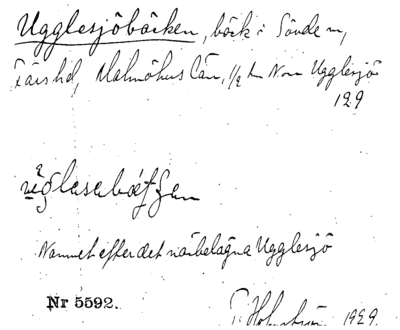 Ugglesjöbäcken, bäck i Sövde sn,
Färs hd, Malmöhus län, 1/2 km Nom Ugglesjö
129
Namnet efter det närbelägna Ugglesjö
Nr 5592.
1929.